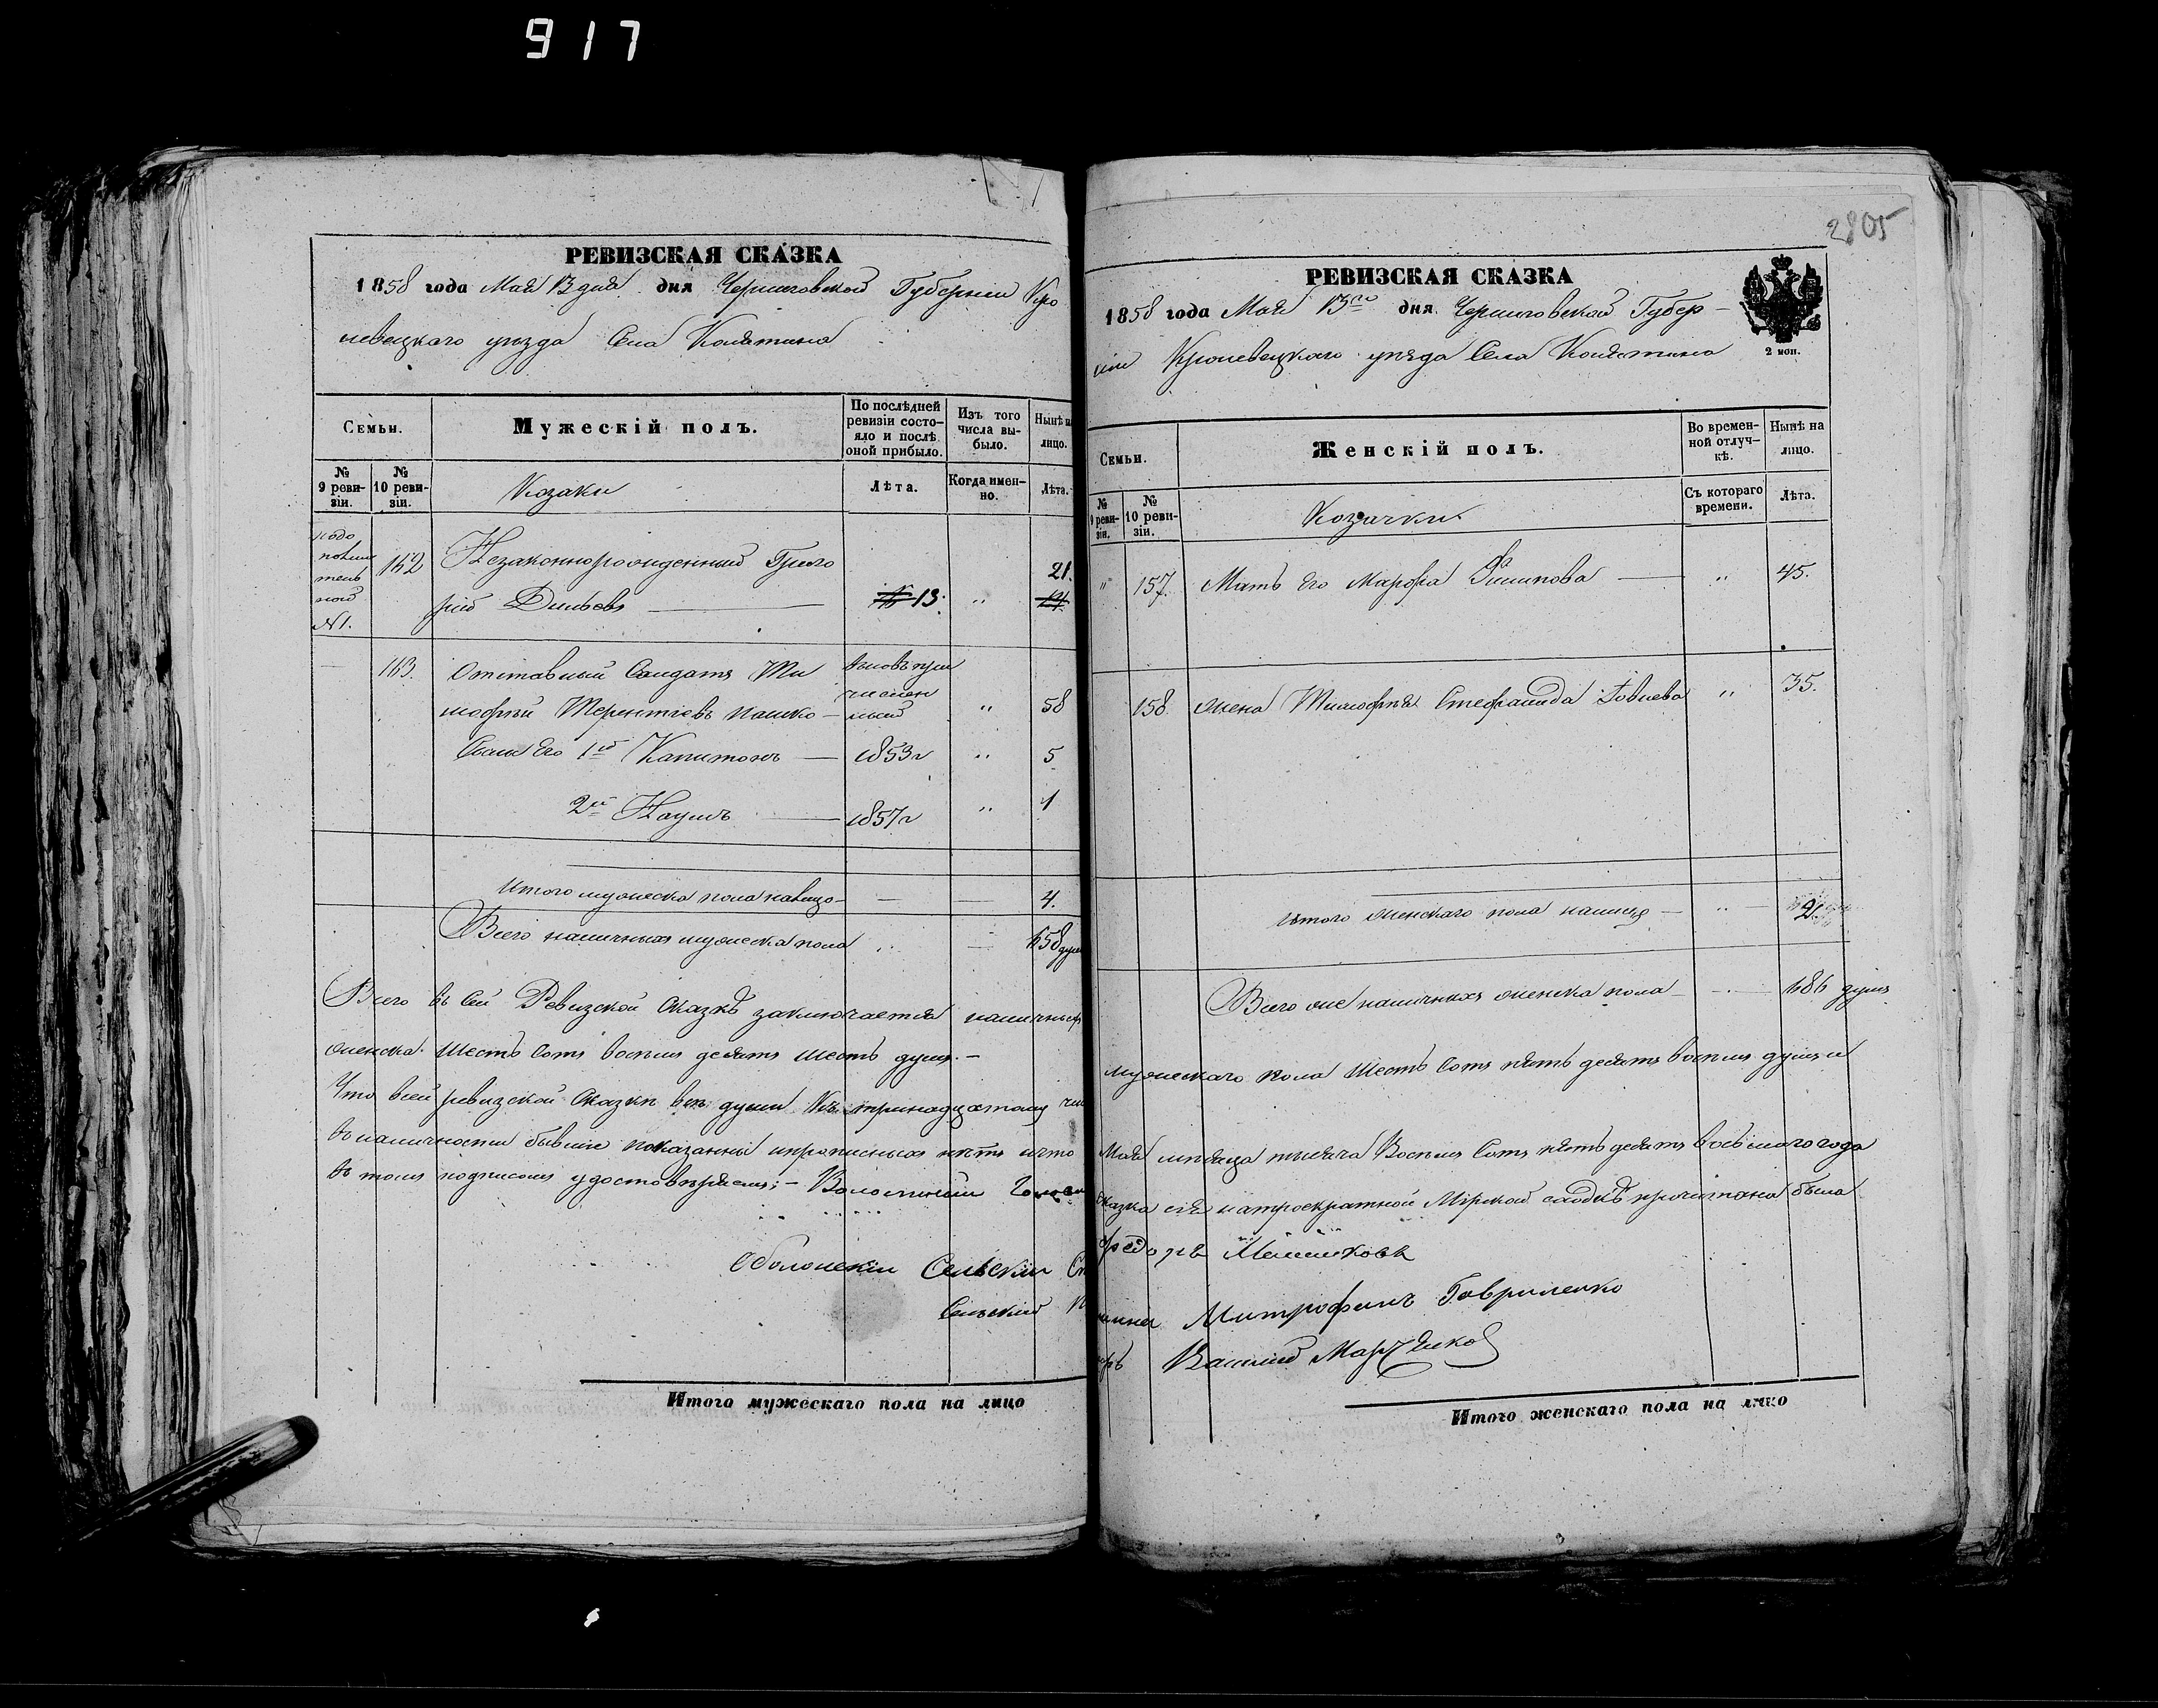 917
РЕВИЗСКАЯ СКАЗКА
1858 года Мая 13 дня дня Черниговской Губерніи Кро
левецкаго уѣзда Села Колятина
Семьи.
Мужескій полъ.
По послѣдней ревизіи состояло и послѣ оной прибыло.
Изъ того числа выбыло.
Нынѣ на лицо.
№ 9 ревизіи.
№ 10 ревизіи.
Козаки
Лѣта.
Когда именно.
Лѣта.
допол
нитель
ной
№1.
162
Незаконнорожденный Григо
рій
13.
"
21.
163.
Отставный Солдатъ Ти
мофѣй Терентіевъ
вновь при
численный
"
58
Сыны Его 1й Капитонъ
1853г
"
5
2й Наумъ
1857г
"
1
Итого мужеска пола налицо
4.
Всего наличныхъ мужеска пола
"
658 душъ
Всего въ Сей Ревизской Сказкѣ заключается наличныхъ
женска Шесть Сотъ восемь десятъ шесть душъ.
Что въ сей ревизской Сказкѣ всѣ души Къ тринадцатому
въ наличности бывшіе показанны и прописныхъ нѣтъ и что
въ томъ подписомъ удостовѣряемъ;- Волостный Голова
Оболонскій Сельскій
Сельскій
2805
РЕВИЗСКАЯ СКАЗКА
1858 года Мая 13го дня Черниговской Губер-
ніи Кролевецкаго уѣзда Села Колятина
2 коп.
Семьи.
Женскій полъ.
Во временной отлучкѣ.
Нынѣ на лицо.
№ 9 ревизіи.
№ 10 ревизіи.
Козачки
Съ котораго времени.
Лѣта.
"
157.
Мать Его Марфа Филипова
"
45.
158
Жена Тимофѣя Стефанида
"
35.
Итого Женскаго пола налицо
"
2
Всего же наличныхъ женска пола
686 душъ
мужескаго пола Шесть Сотъ пять десятъ восемь душъ и
Мая мѣсяца тысяча Восемь Сотъ пять десятъ восьмаго года
сказка сія натроекратной Мірской сходкѣ прочитана была
Федоръ
Митрофанъ Гавриленко
Василій Марченко
Итого мужескаго пола на лицо
Итого женскаго пола на лицо